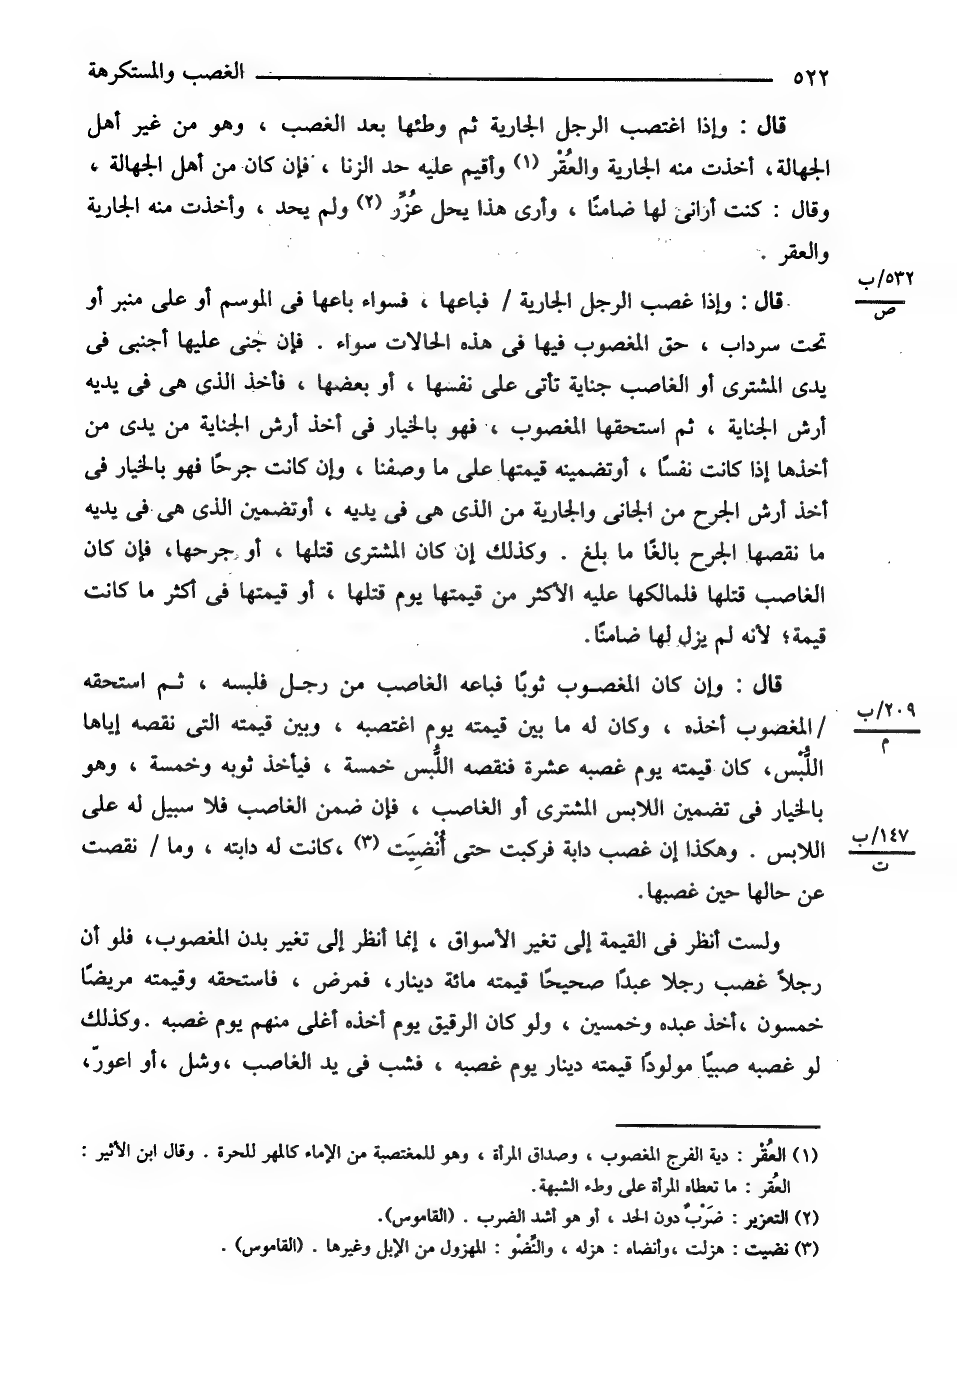 ٥٢٢ ــــــــــــــــ الغصب والمستكرهة
قال : وإذا اغتصب الرجل الجارية ثم وطئها بعد الغصب ، وهو من غير أهل
الجهالة، أخذت منه الجارية والعُقْر (١) وأقيم عليه حد الزنا ، فإن كان من أهل الجهالة ،
وقال : كنت أرانى لها ضامنًا ، وأرى هذا يحل عُزِّر (٢) ولم يحد ، وأخذت منه الجارية
والعقر .
قال : وإذا غصب الرجل الجارية / فباعها ، فسواء باعها فى الموسم أو على منبر أو
٥٣٢/ب
ص
تحت سرداب ، حق المغصوب فيها فى هذه الحالات سواء . فإن جُنى عليها أجنبى فى
يدى المشترى أو الغاصب جناية تأتى على نفسها ، أو بعضها ، فأخذ الذى هى فى يديه
أرش الجناية ، ثم استحقها المغصوب ، فهو بالخيار فى أخذ أرش الجناية من يدى من
أخذها إذا كانت نفسًا ، أوتضمينه قيمتها على ما وصفنا ، وإن كانت جرحًا فهو بالخيار فى
أخذ أرش الجرح من الجانى والجارية من الذى هى فى يديه ، أوتضمين الذى هى فى يديه
ما نقصها الجرح بالغًا ما بلغ . وكذلك إن كان المشترى قتلها ، أو جرحها، فإن كان
الغاصب قتلها فلمالكها عليه الأكثر من قيمتها يوم قتلها ، أو قيمتها فى أكثر ما كانت
قيمة؛ لأنه لم يزل لها ضامنًا.
قال : وإن كان المغصوب ثوبًا فباعه الغاصب من رجل فلبسه ، ثم استحقه
٢٠٩/ب
م
/ المغصوب أخذه ، وكان له ما بين قيمته يوم اغتصبه ، وبين قيمته التى نقصه إياها
اللُّبْس، كان قيمته يوم غصبه عشرة فنقصه اللُّبس خمسة ، فيأخذ ثوبه وخمسة ، وهو
بالخيار فى تضمين اللابس المشترى أو الغاصب ، فإن ضمن الغاصب فلا سبيل له على
١٤٧/ب
ت
اللابس . وهكذا إن غصب دابة فركبت حتى أُنْضِيَت (٣) ،كانت له دابته ، وما / نقصت
عن حالها حين غصبها.
ولست أنظر فى القيمة إلى تغير الأسواق ، إنما أنظر إلى تغير بدن المغصوب، فلو أن
رجلاً غصب رجلا عبدًا صحيحًا قيمته مائة دينار، فمرض ، فاستحقه وقيمته مريضًا
خمسون ،أخذ عبده وخمسين ، ولو كان الرقيق يوم أخذه أغلى منهم يوم غصبه .وكذلك
لو غصبه صبيًا مولودًا قيمته دينار يوم غصبه ، فشب فى يد الغاصب ،وشل ،أو اعورّ،
(١) العُقْر : دية الفرج المغصوب ، وصداق المرأة ، وهو للمغتصبة من الإماء كالمهر للحرة . وقال ابن الأثير :
العُقر : ما تعطاه المرأة على وطء الشبهة.
(٢) التعزير : ضَرْبٌ دون الحد ، أو هو أشد الضرب . (القاموس).
(٣) نضيت : هزلت ،وأنضاه : هزله ، والنِّضْو : المهزول من الإبل وغيرها . (القاموس) .